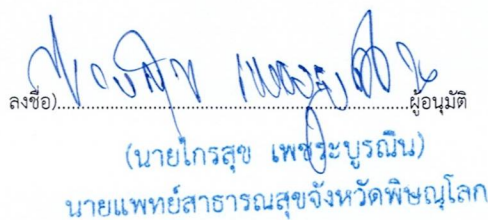 ลงชื่อ)..............................................................ผู้อนุมัติ
(นายไกรสุข เพชระบูรณิน)
นายแพทย์สาธารณสุขจังหวัดพิษณุโลก